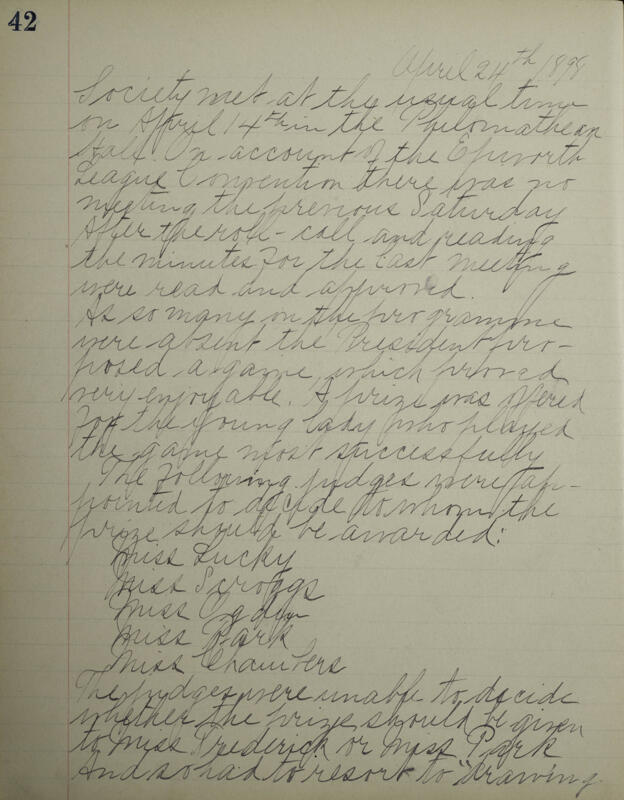 42
April 24th 1898
Society met at the usual time
on April 14th in the Philomathean
Hall. On account of the Epworth
League Convention there was no
meeting the previous Saturday
After the roll-call and reading
the minutes for the last meeting
were read and approved.
As so many on the programme
were absent the President pro-
posed a game, which proved
very enjoyable. A prize was offered
for the young lady who played
the game most successfully
The following judges were ap-
pointed to decide to whom the
prize should be awarded:
Miss Lucky
Miss Scroggs
Miss Ogden
Miss Park
Miss Chambers
The judges were unable to decide
whether the prize should be given
to Miss Frederick or Miss Park
And so had to resort to "drawing